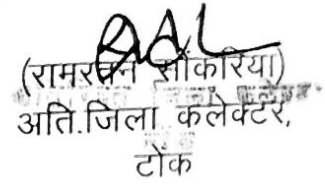 (रामरतन सौंकरिया)
अति.जिला कलेक्टर,
टोंक